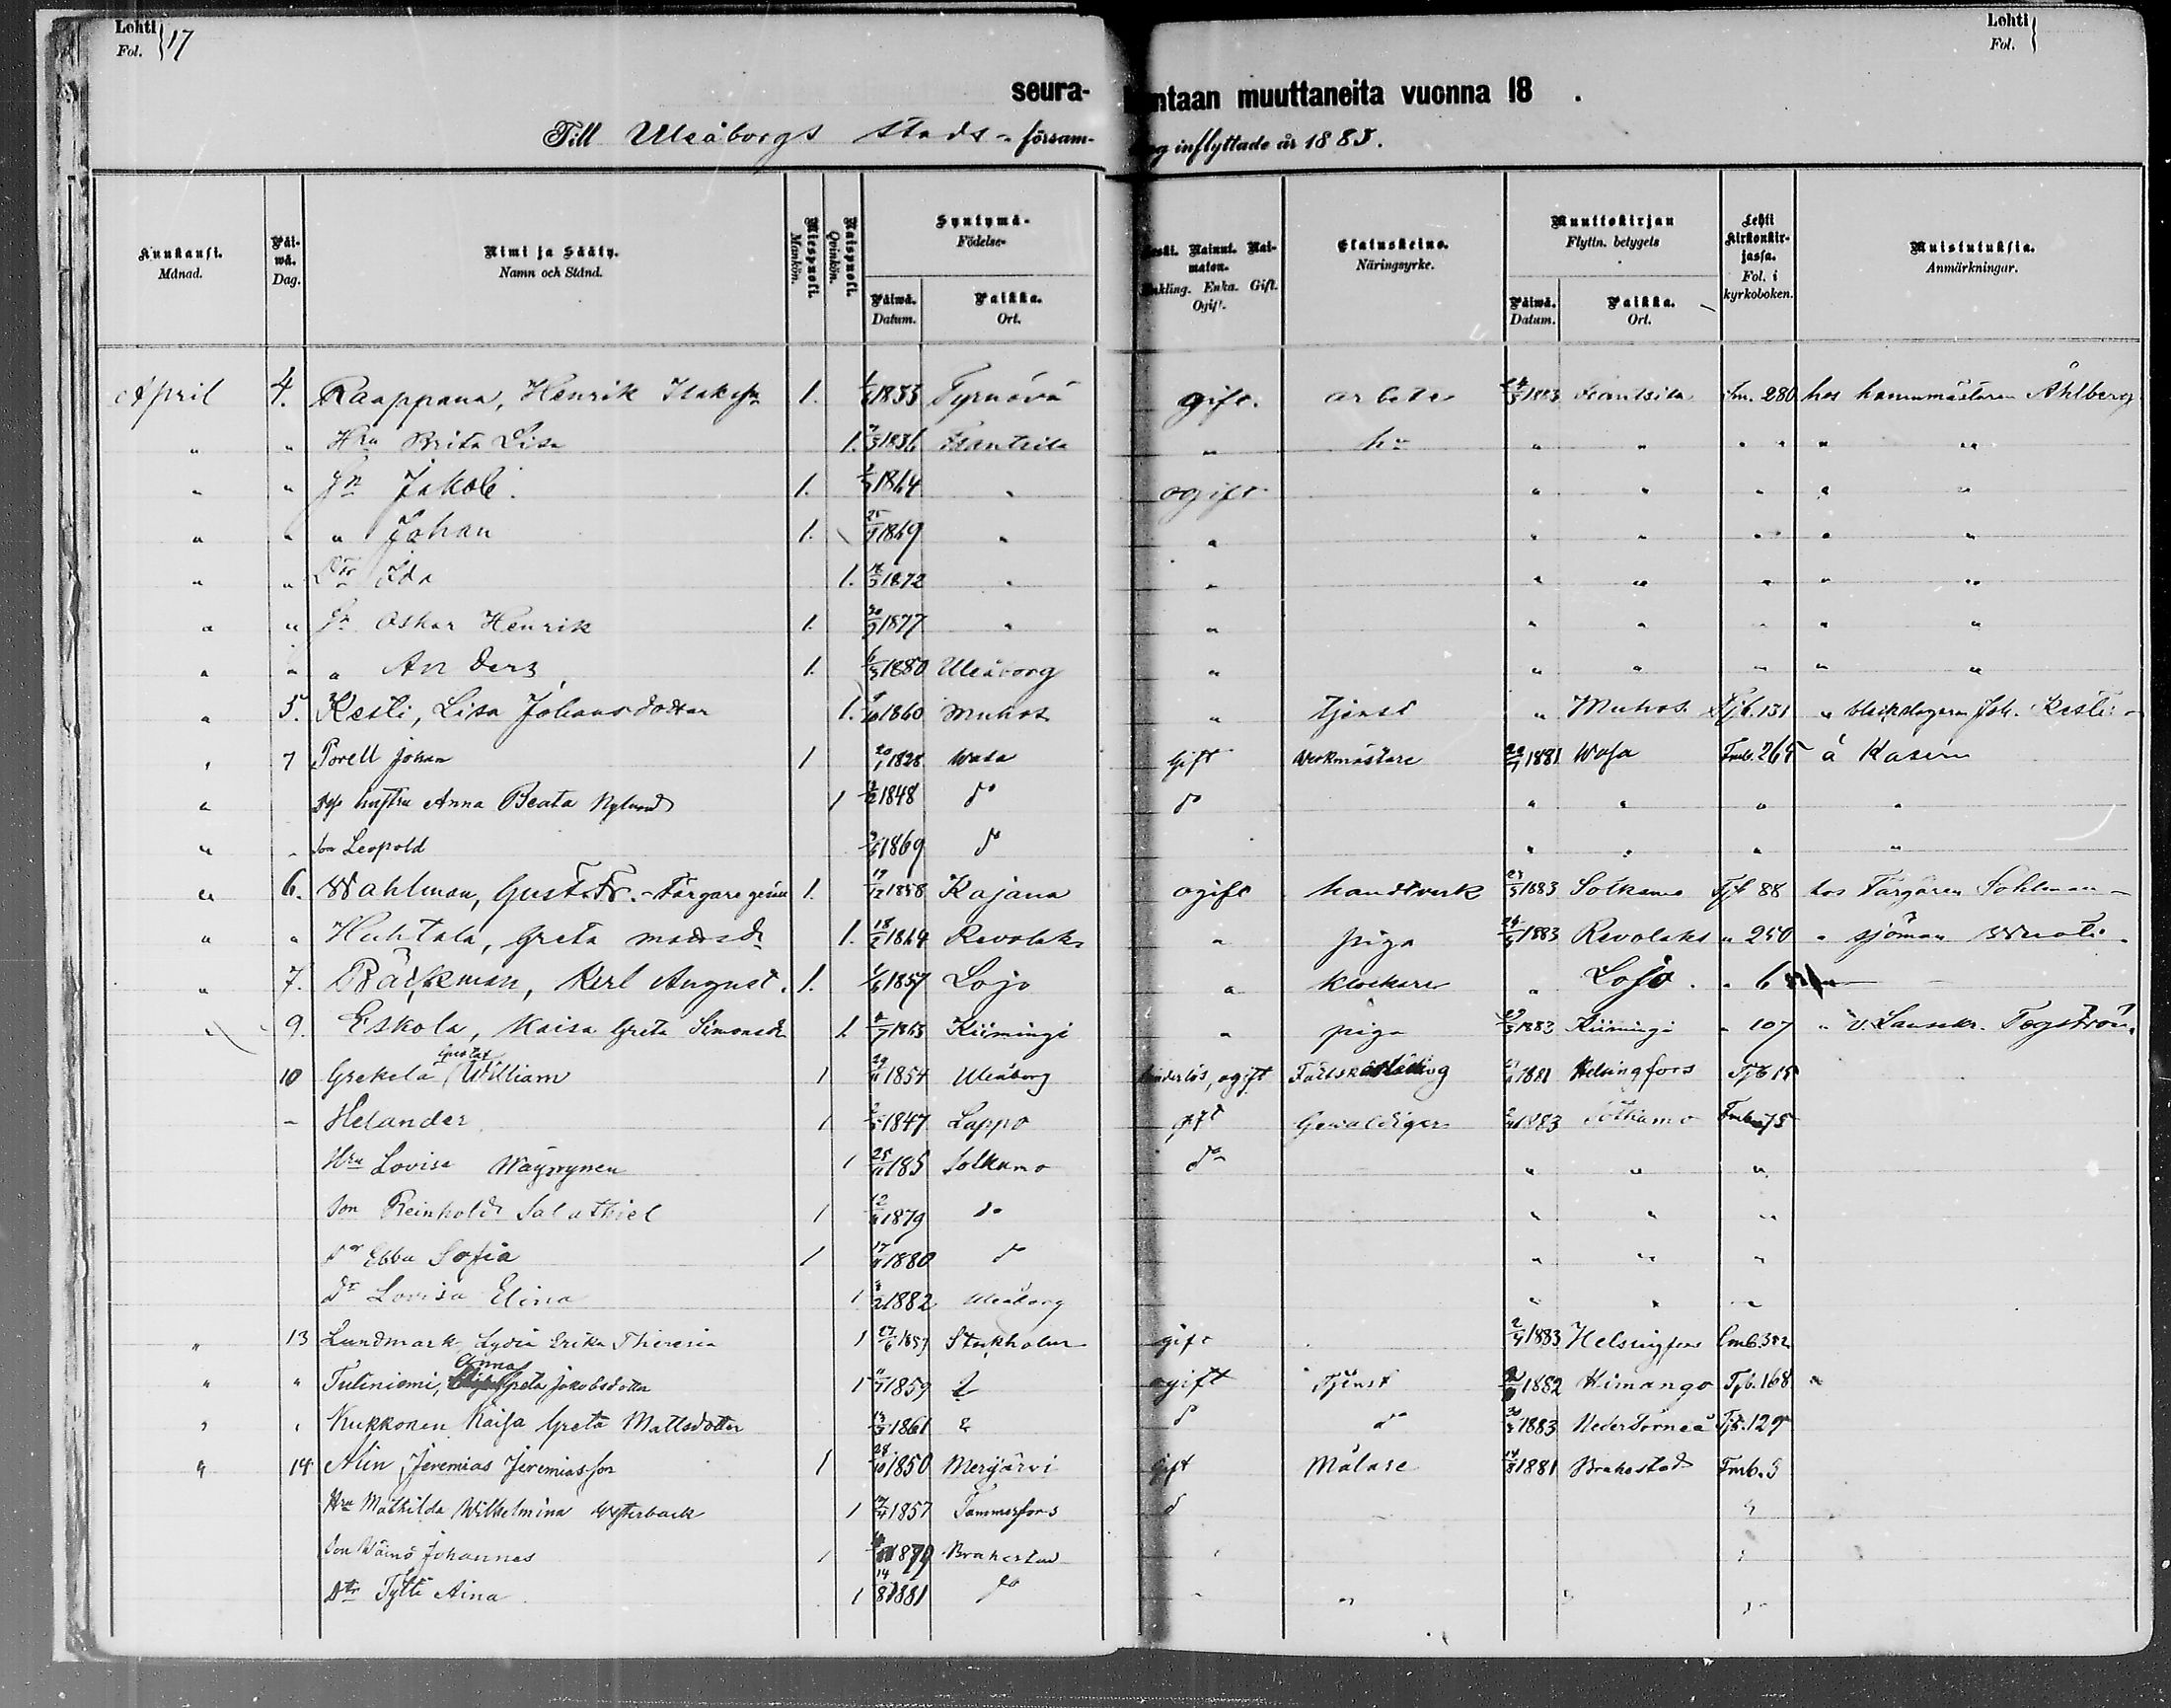 Lehti Fol. } 17
Lehti Fol. }
seura- ntaan muuttaneita vuonna 18 .
Till Uleåborgs stads- försam- g inflyttade år 1883.
Kuukausi. Månad.
Päi-wä. Dag.
Nimi ja Sääty. Namn och Stånd.
Miespuoli. Mankön.
Naispuoli. Qvinkön.
Syntymä- Födelse-
Päiwä. Datum.
Paikka. Ort.
Leski. Nainut. Nai-maton. Enkling. Enka. Gift. Ogift.
Elatuskeino. Näringsyrke.
Muuttokirjan Flyttn. betygets
Päiwä. Datum.
Paikka. Ort.
Lehti Kirkonkir-jassa. Fol. i kyrkoboken.
Muistutuksia. Anmärkningar.
April 4. Raappana, Henrik 1. 1833 Tyrnävä gift. arbete 1883 Frantsila 280 hos hamnmästaren Åhlberg
" " Hru Brita Lisa 1. 1836 Frantsila " " " " " " "
" " Sn Jakob. 1. 1864 " ogift " " " " "
" " " Johan 1. 1869 " " " " " " "
" " Dtr Ida 1. 1872 " " " " " " "
" " Sn Oskar Henrik 1. 1877 " " " " " " "
" " " Anders 1. 1880 Uleåborg " " " " " "
" 5. Kesti, Lisa Johansdotter 1. 1860 Muhos " tjenst " Muhos Tjb. 131 " bleckslagaren Joh. Kesti
" 7 Porell Johan 1 20/1 1828 Wasa Gift Verkmästare 1881 Wasa Fmb. 265 å Kasern
" hustru Anna Beata Nylund 1 1848 do do " " " "
" " son Leopold 1869 do " " " "
" 6. Wahlman, Gust. Fr. - Färgare 1. 1858 Kajana ogift handtverk 1883 Sotkamo Tjb 88 hos Färgaren Sohlman
" " Huhtala, Greta 1. 18/2 1864 Revolaks " piga 1883 Revolaks " 250 " sjöman
" 7. Bäckman, Karl August. 1. 1857 Lojo " klockare " Lojo. " 6
" 9. Eskola, Kaisa Greta Simonsdr 1. 1863 Kiimingi " piga 1883 Kiimingi " 107 "
10 Grekelä Gustaf William 1 1854 Uleåborg ogift 1881 Helsingfors Tjb 15
- Helander 1 1847 Lappo gift Gevaldiger 1883 Sotkamo Fmb 75
Hru Lovisa Wäyrynen 1 185 Sotkamo do " " "
Son Reinhold Salathiel 1 1879 do " " "
Dr Ebba Sofia 1 17 1880 do " " "
Dr Lovisa Elina 1 1882 Uleåborg " " "
" 13 Lundmark Lydia Erika Theresia 1 27/6 1857 Stockholm gift 2/4 1883 Helsingfors
" " Tuliniemi, Anna Greta Jakobsdotter 1 1859 ogift Tjenst 1882 Himango Tjb. 168 "
" " Kukkonen Kaisa Greta Mattsdotter 1 1861 do do 1883 Neder Torneå Tjb. 129
" 14 Alin Jeremias Jeremiasson 1 28/10 1850 Merijärvi Gift Målare 14/8 1881 Brahestad Fmb. 3
Hru Mathilda Wilhelmina 1 1857 Tammerfors do "
Son Wäinö Johannes 1 1879 Brahestad " "
Dtr Tytti Aina 1 14/8 1881 do " " " "